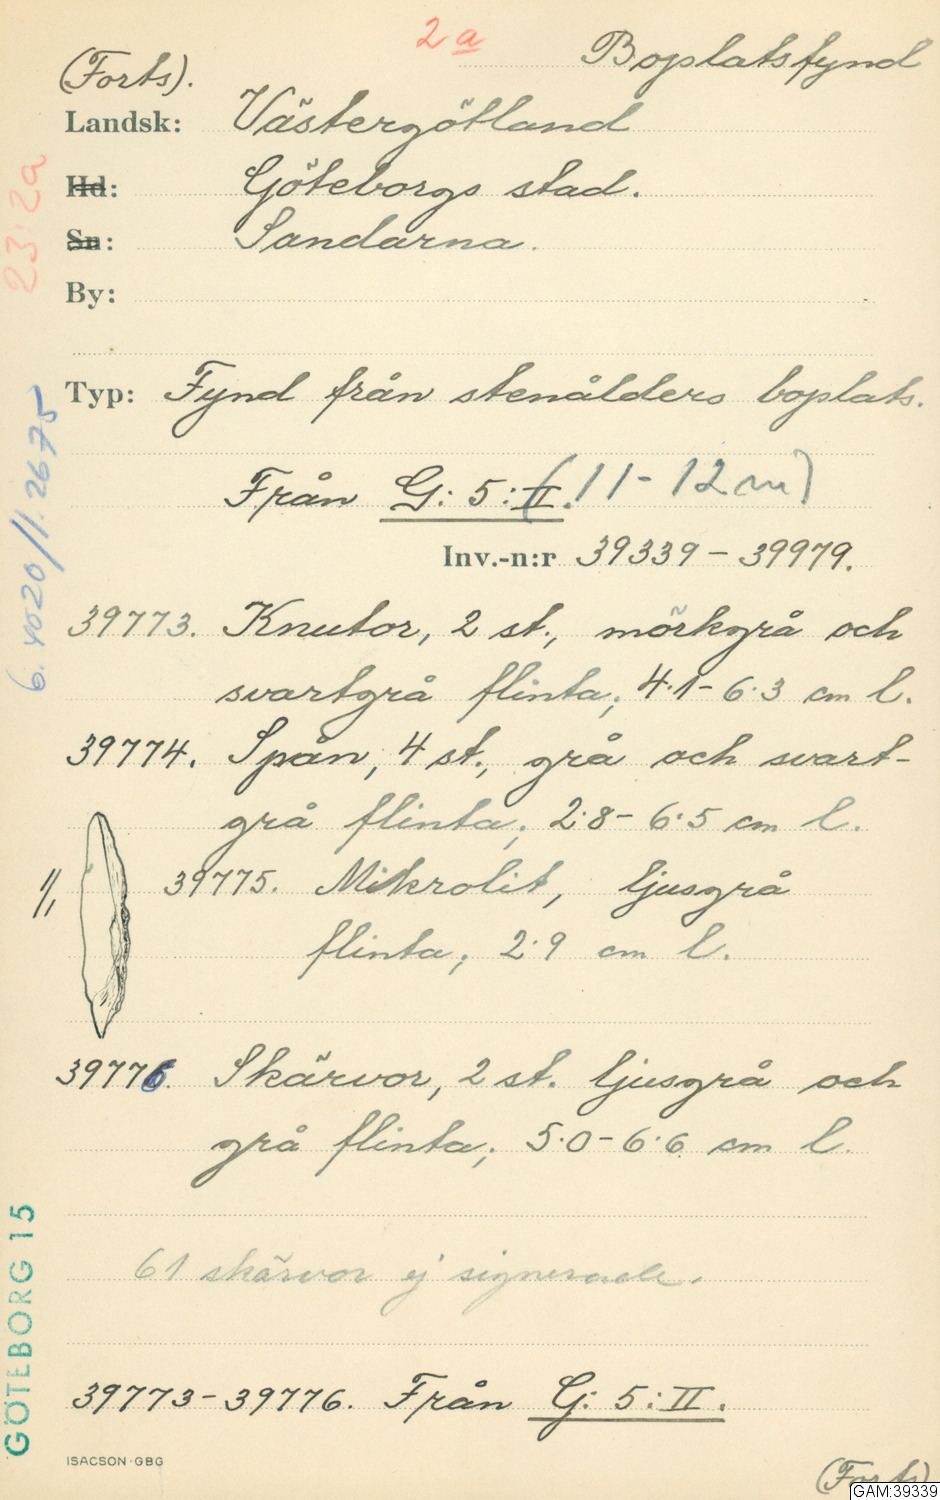 2a
Boplatsfynd
(Forts).
Landsk: Västergötland
Hd: Göteborgs stad.
Sn: Sandarna.
By:
Typ: Fynd från stenålders boplats.
Från G: 5: II. (11-12 m)
Inv.-n:r 39339 – 39979.
39773. Knutor, 2 st., mörkgrå och
svartgrå flinta; 4·1 – 6·3 cm l.
39774. Spån, 4 st., grå och svart-
grå flinta; 2·8 – 6·5 cm l.
1/1
39775. Mikrolit, ljusgrå
flinta; 2·9 cm l.
39776. Skärvor, 2 st. ljusgrå och
grå flinta; 5·0 – 6·6 cm l.
61 skärvor ej signerade.
39773 – 39776. Från G: 5: II.
ISACSON·GBG
(Forts)
GAM:39339
23:2a
6. 4020/1.2675
GÖTEBORG 15